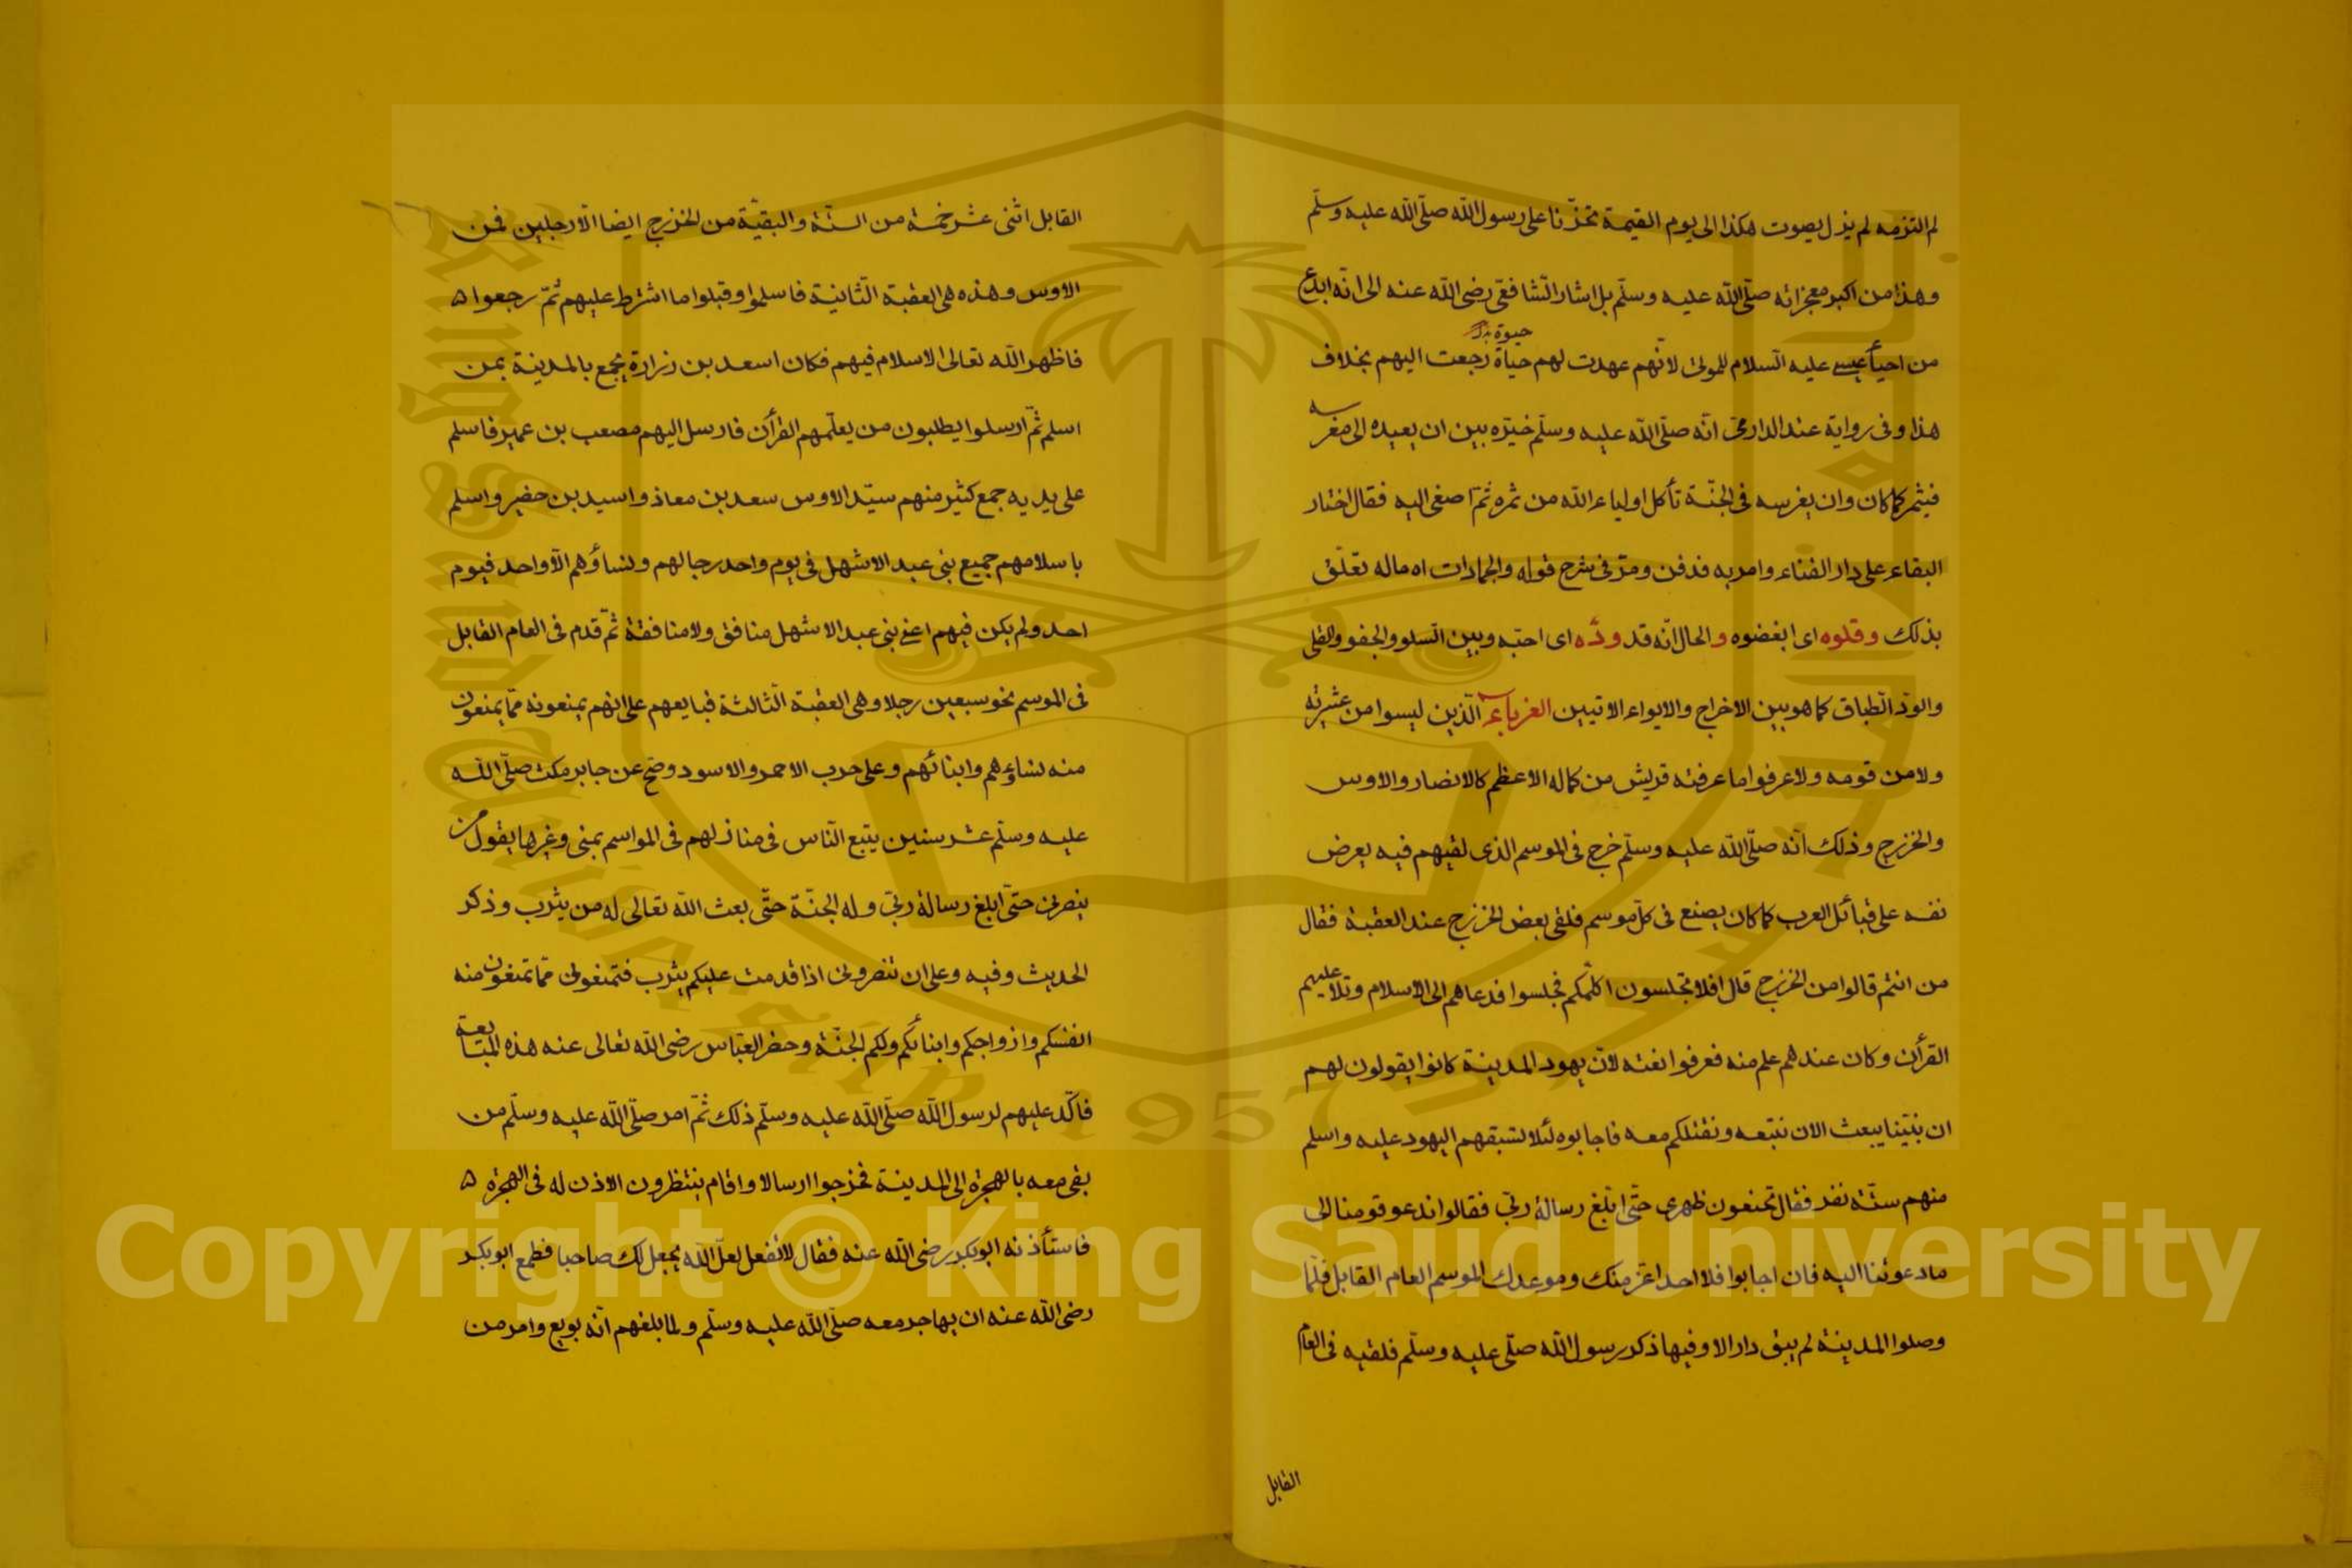 لم التزمه لم يزل يصوت هكذا الى يوم القيمة تحزّنا على رسول الله صلّى الله عليه وسلّم
وهذا من اكبر معجزاته صلّى الله عليه وسلّم بل اشار الشّافعى رضى الله عنه الى انّه ابدع
حيوة
من احيأ عيسى عليه السّلام للموتى لانّهم عهدت لهم حياة رجعت اليهم بخلاف
هذا وفى رواية عند الدارمى انّه صلّى الله عليه وسلّم خيّره بين ان يعيده الى مغرسه
فيثمر كما كان وان يغرسه فى الجنّة تأكل اولياء الله من ثمره ثمّ اصغى اليه فقال اختار
البقاء على دار الفناء وامر به فدفن ومرّ فى شرح قوله والجمادات اه ماله تعلّق
بذلك وقلوه اى ابغضوه والحال انّه قد ودّه اى احبّه وبين السّلو والجفو والقلى
والودّ الطّباق كما هو بين الاخراج والايواء الاتيين الغرباء الّذين ليسوا من عشيرته
ولا من قومه ولا عرفوا ما عرفته قريش من كماله الاعظم كالانصار والاوس
والخزرج وذلك انّه صلّى الله عليه وسلّم خرج فى الموسم الذى لقيهم فيه يعرض
نفسه على قبائل العرب كما كان يصنع فى كلّ موسم فلقى بعض الخزرج عند العقبة فقال
من انتم قالوا من الخزرج قال افلا تجلسون اكلّمكم فجلسوا فدعاهم الى الاسلام وتلا عليهم
القرأن وكان عندهم علم منه فعرفوا نعته لانّ يهود المدينة كانوا يقولون لهم
ان نبيّنا يبعث الان نتبعه ونقتلكم معه فاجابوه لئلا تسبقهم اليهود عليه واسلم
منهم ستّة نفر فقال تمنعون ظهرى حتّى ابلّغ رسالة ربّى فقالوا ندعو قومنا الى
ما دعوتنا اليه فان اجابوا فلا احد اعزّ منك وموعدك الموسم العام القابل فلمّا
وصلوا المدينة لم يبق دار الا وفيها ذكر رسول الله صلّى عليه وسلّم فلقيه فى العام
القابل
القابل اثنى عشر خمسة من الستّة والبقيّة من الخزرج ايضا الّا رجلين فمن
الاوس وهذه هى العقبة الثّانية فاسلموا وقبلوا ما اشترط عليهم ثمّ رجعوا ه
فاظهر الله تعالى الاسلام فيهم فكان اسعد بن زرارة يجمع بالمدينة بمن
اسلم ثمّ ارسلوا يطلبون من يعلّمهم القرأن فارسل اليهم مصعب بن عمير فاسلم
على يديه جمع كثير منهم سيّد الاوس سعد بن معاذ واسيد بن حضير واسلم
باسلامهم جميع بنى عبد الاشهل فى يوم واحد رجالهم ونساؤهم الّا واحد فيوم
احد ولم يكن فيهم اعنى بنى عبد الاشهل منافق ولا منافقة ثمّ قدم فى العام القابل
فى الموسم نحو سبعين رجلا وهى العقبة الثّالثة فبايعهم على انهم يمنعونه ممّا يمنعون
منه نساؤهم وابنائهم وعلى حرب الاحمر والاسود وصحّ عن جابر مكث صلّى الله
عليه وسلّم عشر سنين يتبع النّاس فى منازلهم فى المواسم بمنى وغيرها يقول من
ينصرنى حتّى ابلغ رسالة ربّى وله الجنّة حتّى بعث الله تعالى له من يثرب وذكر
الحديث وفيه وعلى ان تنصرونى اذا قدمت عليكم يثرب فتمنعونى ممّا تمنعون منه
انفسكم وازواجكم وابنائكم ولكم الجنّة وحضر العبّاس رضى الله تعالى عنه هذه المبايعة
فاكّد عليهم لرسول الله صلّى الله عليه وسلّم ذلك ثمّ امر صلّى الله عليه وسلّم من
بقى معه بالهجرة الى المدينة فخرجوا ارسالا واقام ينتظرون الاذن له فى الهجرة ه
فاستأذنه ابوبكر رضى الله عنه فقال لا تفعل لعلّ الله يجعل لك صاحبا فطمع ابو بكر
رضى الله عنه ان يهاجر معه صلّى الله عليه وسلّم ولما بلغهم انّه بويع وامر من
Copyright © King Saud University
King Saud University
1957